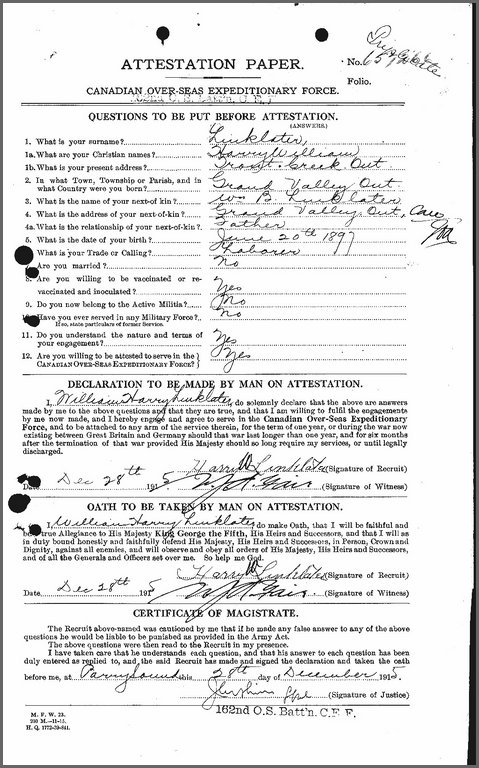 Triplicate
ATTESTATION PAPER.
No.
Folio.
CANADIAN OVER-SEAS EXPEDITIONARY FORCE.
QUESTIONS TO BE PUT BEFORE ATTESTATION.
(ANSWERS)
1. What is your surname? Linklater,
1a. What are your Christian names? Harry William
1b. What is your present address? Trout Creek Ont
2. In what Town, Township or Parish, and in
what Country were you born? Grand Valley Ont.
3. What is the name of your next-of-kin? Wm B. Linklater
4. What is the address of your next-of-kin? Grand Valley, Ont, Can
4a. What is the relationship of your next-of-kin? Father
5. What is the date of your birth? June 20th 1897
What is your Trade or Calling? Laborer
Are you married? No
8. Are you willing to be vaccinated or re-
vaccinated and inoculated? Yes
9. Do you now belong to the Active Militia? No
10. Have you ever served in any Military Force? No
If so, state particulars of former Service.
11. Do you understand the nature and terms of
your engagement? Yes
12. Are you willing to be attested to serve in the
CANADIAN OVER-SEAS EXPEDITIONARY FORCE? Yes
DECLARATION TO BE MADE BY MAN ON ATTESTATION.
I, William Harry Linklater, do solemnly declare that the above are answers
made by me to the above questions and that they are true, and that I am willing to fulfil the engagements
by me now made, and I hereby engage and agree to serve in the Canadian Over-Seas Expeditionary
Force, and to be attached to any arm of the service therein, for the term of one year, or during the war now
existing between Great Britain and Germany should that war last longer than one year, and for six months
after the termination of that war provided His Majesty should so long require my services, or until legally
discharged.
Harry W Linklater (Signature of Recruit)
Date Dec 28th 1915 (Signature of Witness)
OATH TO BE TAKEN BY MAN ON ATTESTATION.
I, William Harry Linklater, do make Oath, that I will be faithful and
bear true Allegiance to His Majesty King George the Fifth, His Heirs and Successors, and that I will as
in duty bound honestly and faithfully defend His Majesty, His Heirs and Successors, in Person, Crown and
Dignity, against all enemies, and will observe and obey all orders of His Majesty, His Heirs and Successors,
and of all the Generals and Officers set over me. So help me God.
Harry W Linklater (Signature of Recruit)
Date Dec 28th 1915 (Signature of Witness)
CERTIFICATE OF MAGISTRATE.
The Recruit above-named was cautioned by me that if he made any false answer to any of the above
questions he would be liable to be punished as provided in the Army Act.
The above questions were then read to the Recruit in my presence.
I have taken care that he understands each question, and that his answer to each question has been
duly entered as replied to, and the said Recruit has made and signed the declaration and taken the oath
before me, at Parry Sound this 28th day of December 1915.
(Signature of Justice)
M. F. W. 23.
200 M.-11-15.
H. Q. 1772-39-841.
162nd O.S. Batt'n. C.E.F.